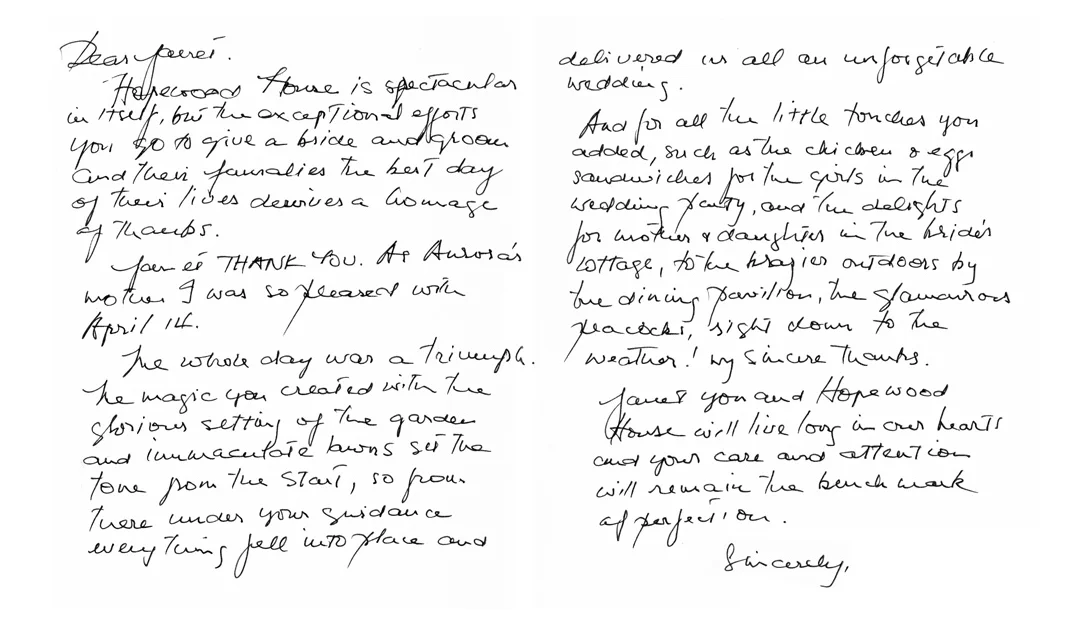 Dear Janet.
Hopewood House is spectacular
in itself, but the exceptional efforts
you go to give a bride and groom
and their families the best day
of their lives deserves a homage
of thanks.
Janet THANK YOU. As Aurora's
mother I was so pleased with
April 14.
The whole day was a triumph.
The magic you created with the
glorious setting of the garden
and immaculate lawns set the
tone from the start, so from
there under your guidance
everything fell into place and
delivered us all an unforgetable
wedding.
And for all the little touches you
added, such as the chicken & egg
sandwiches for the girls in the
wedding party, and the delights
for mother & daughter in the bride's
cottage, to the brazier outdoors by
the dining pavilion, the glamourous
peacocks, right down to the
weather! my sincere thanks.
Janet you and Hopewood
House will live long in our hearts
and your care and attention
will remain the bench mark
of perfection.
Sincerely,